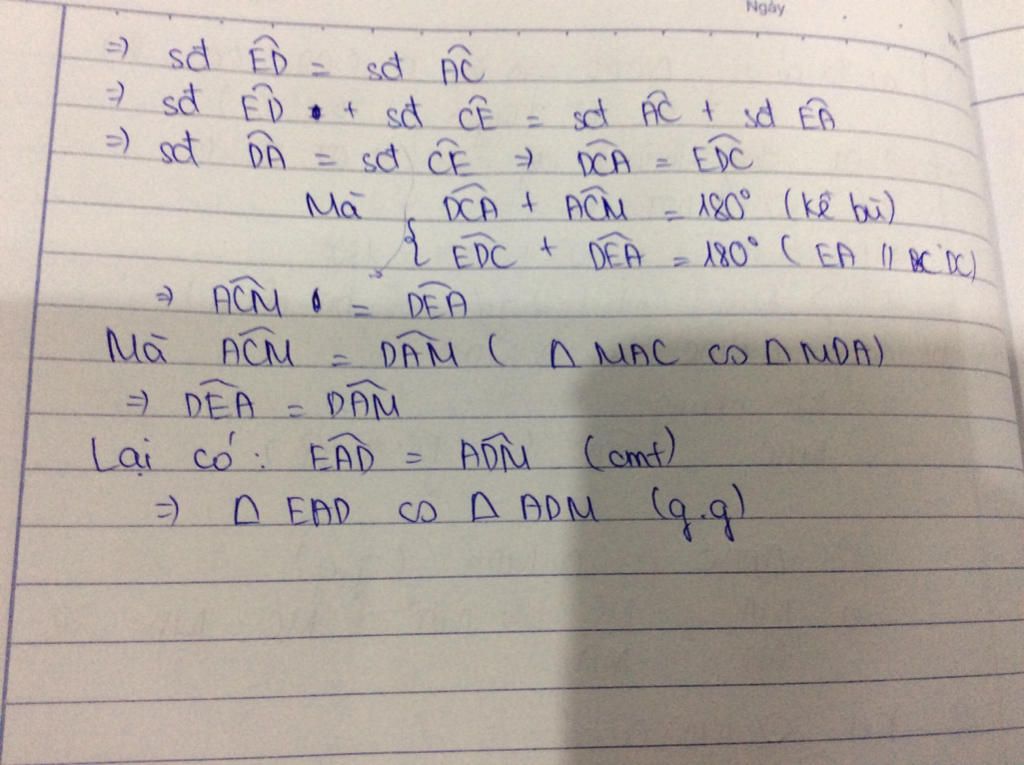 Ngày
=> sđ ÊD = sđ AĈ
=> sđ ÊD + sđ CÊ = sđ AĈ + sđ ÊA
=> sđ D̂A = sđ CÊ => DĈA = ED̂C
Mà { DĈA + AĈM = 180° (kề bù)
ED̂C + DÊA = 180° ( EA // DC)
=> AĈM = DÊA
Mà AĈM = DÂM ( Δ MAC ∽ Δ MDA)
=> DÊA = DÂM
Lại có : EÂD = AD̂M (cmt)
=> Δ EAD ∽ Δ ADM (g.g)